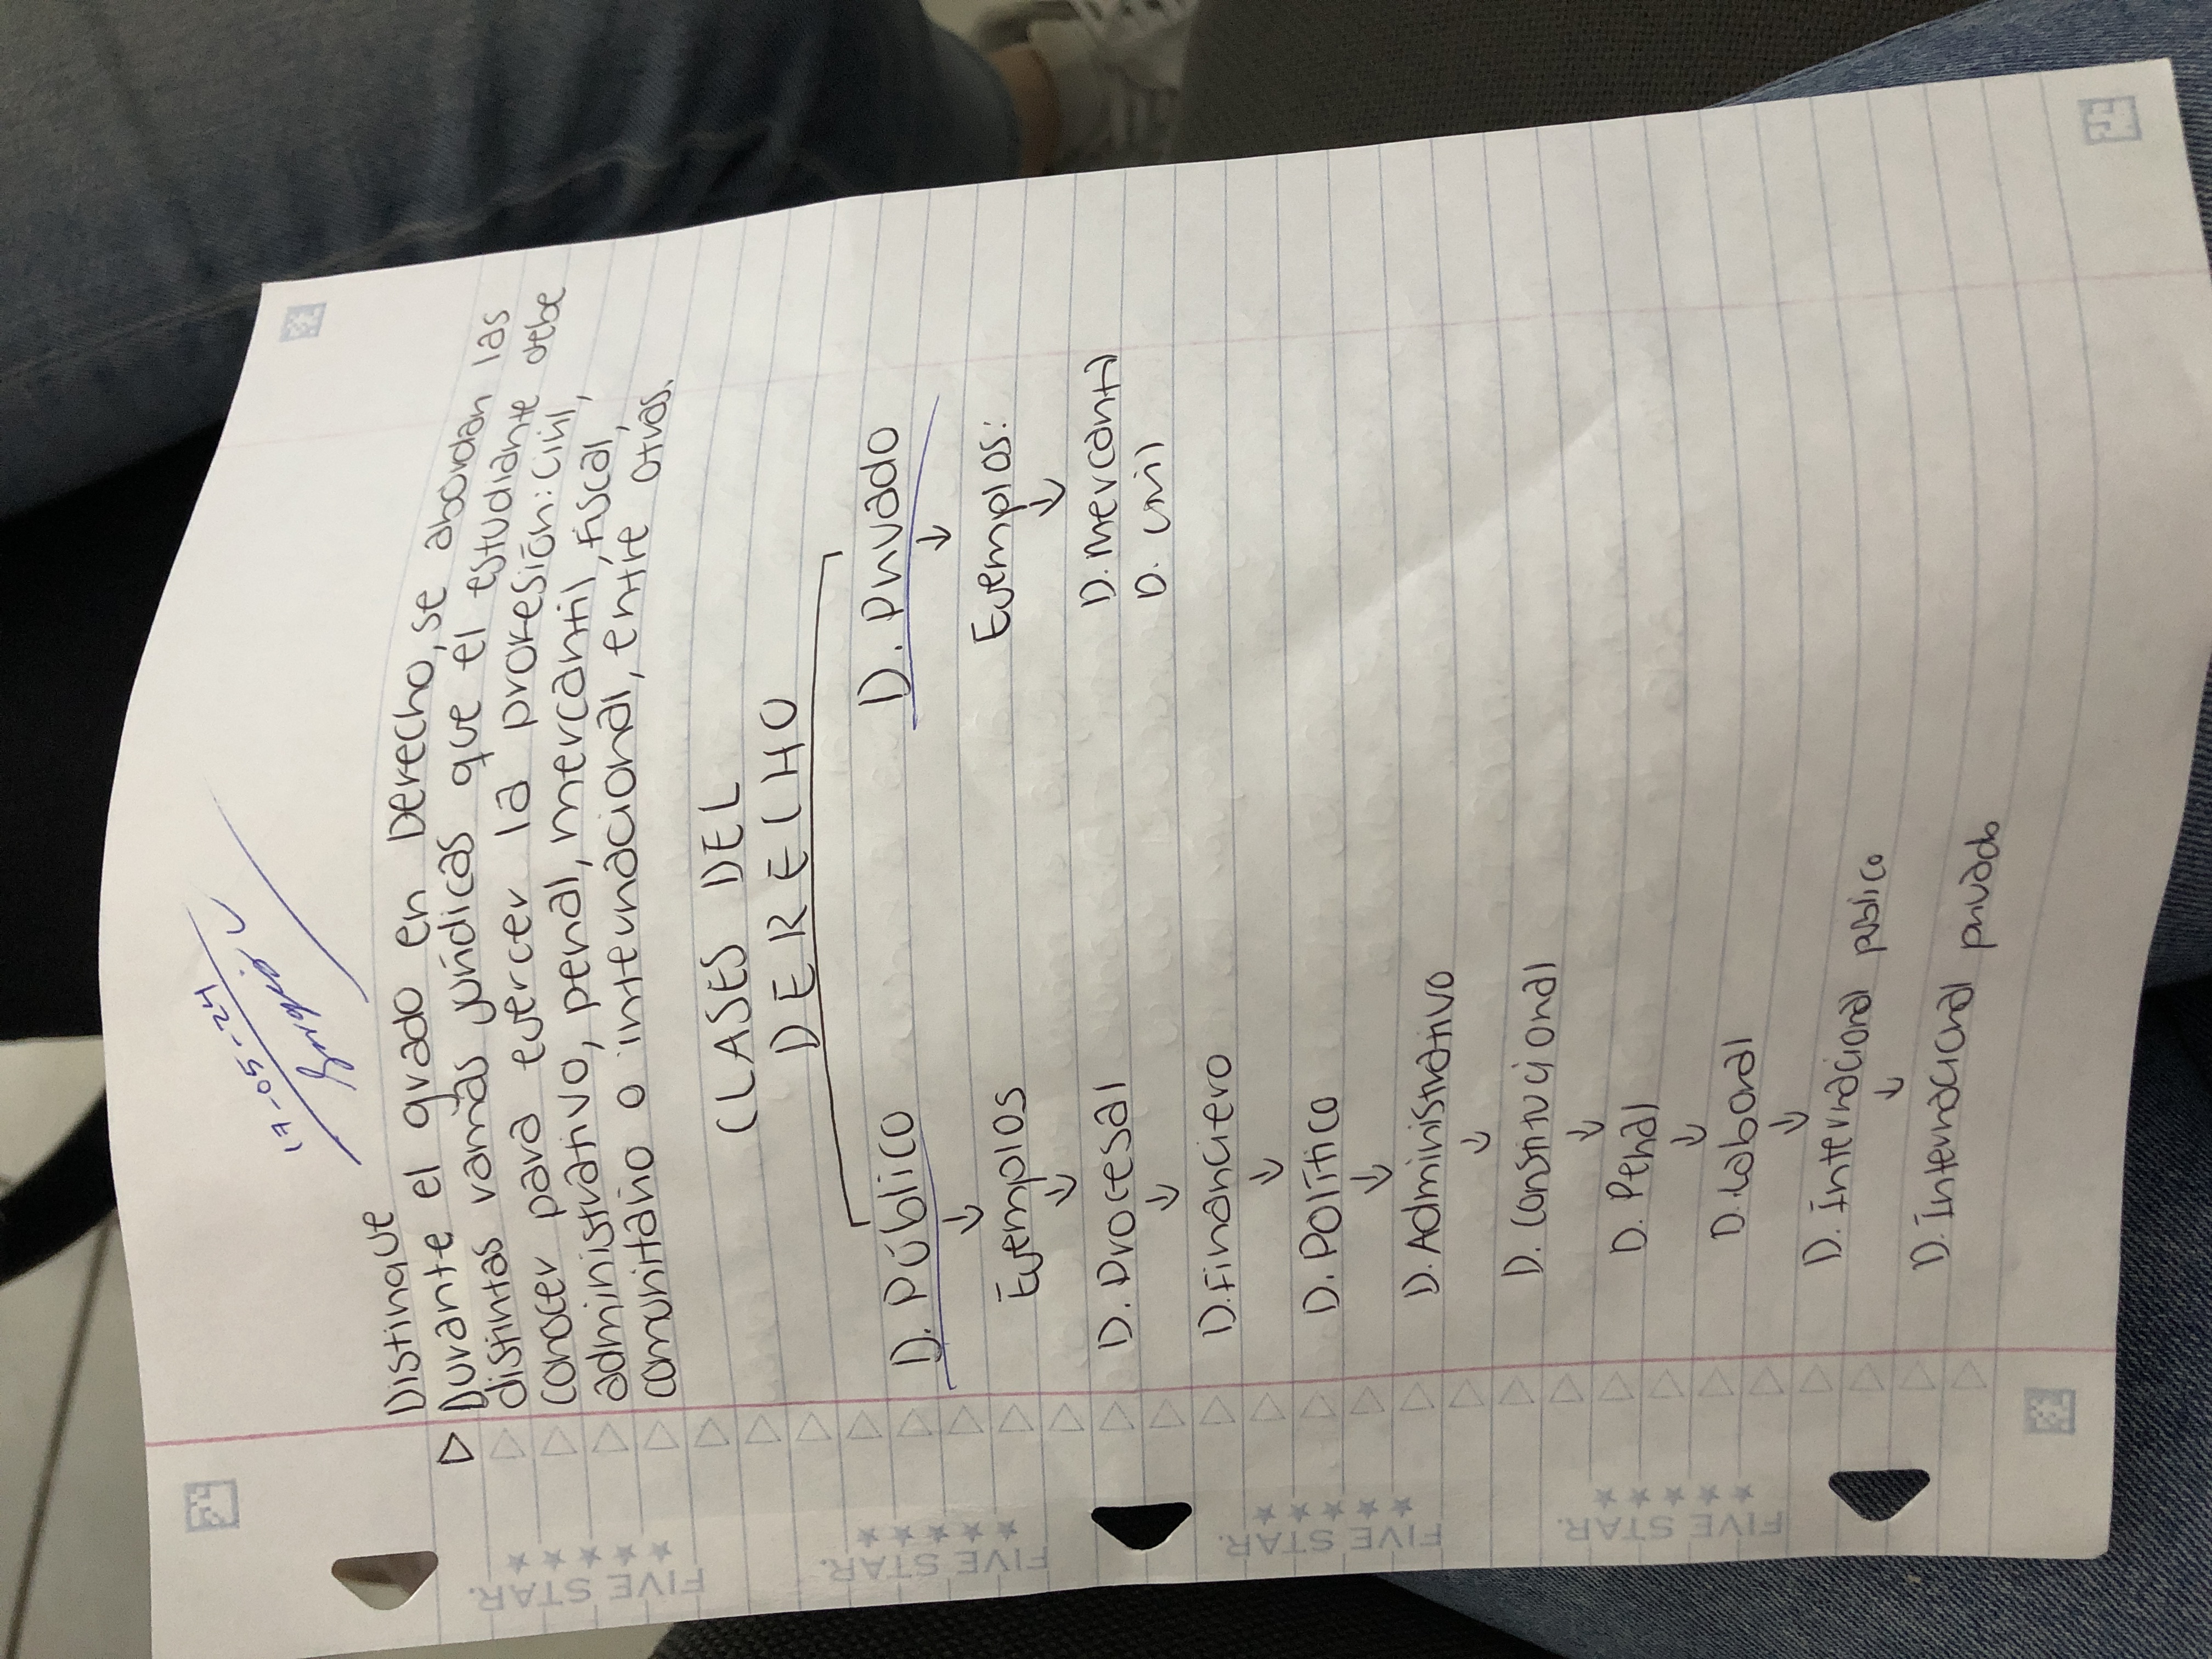 17-05-24
Distingue
Durante el grado en Derecho, se abordan las
distintas ramas jurídicas que el estudiante debe
conocer para ejercer la profesión: Civil,
administrativo, penal, mercantil, fiscal,
comunitario o internacional, entre otras.
CLASES DEL
DERECHO
D. Público
D. Privado
↓
↓
Ejemplos
Ejemplos:
↓
↓
D. Procesal
D. mercantil
D. civil
↓
D. Financiero
↓
D. Político
↓
D. Administrativo
↓
D. Constitucional
↓
D. Penal
↓
D. Laboral
↓
D. Internacional público
↓
D. Internacional privado
FIVE STAR.
FIVE STAR.
FIVE STAR.
FIVE STAR.